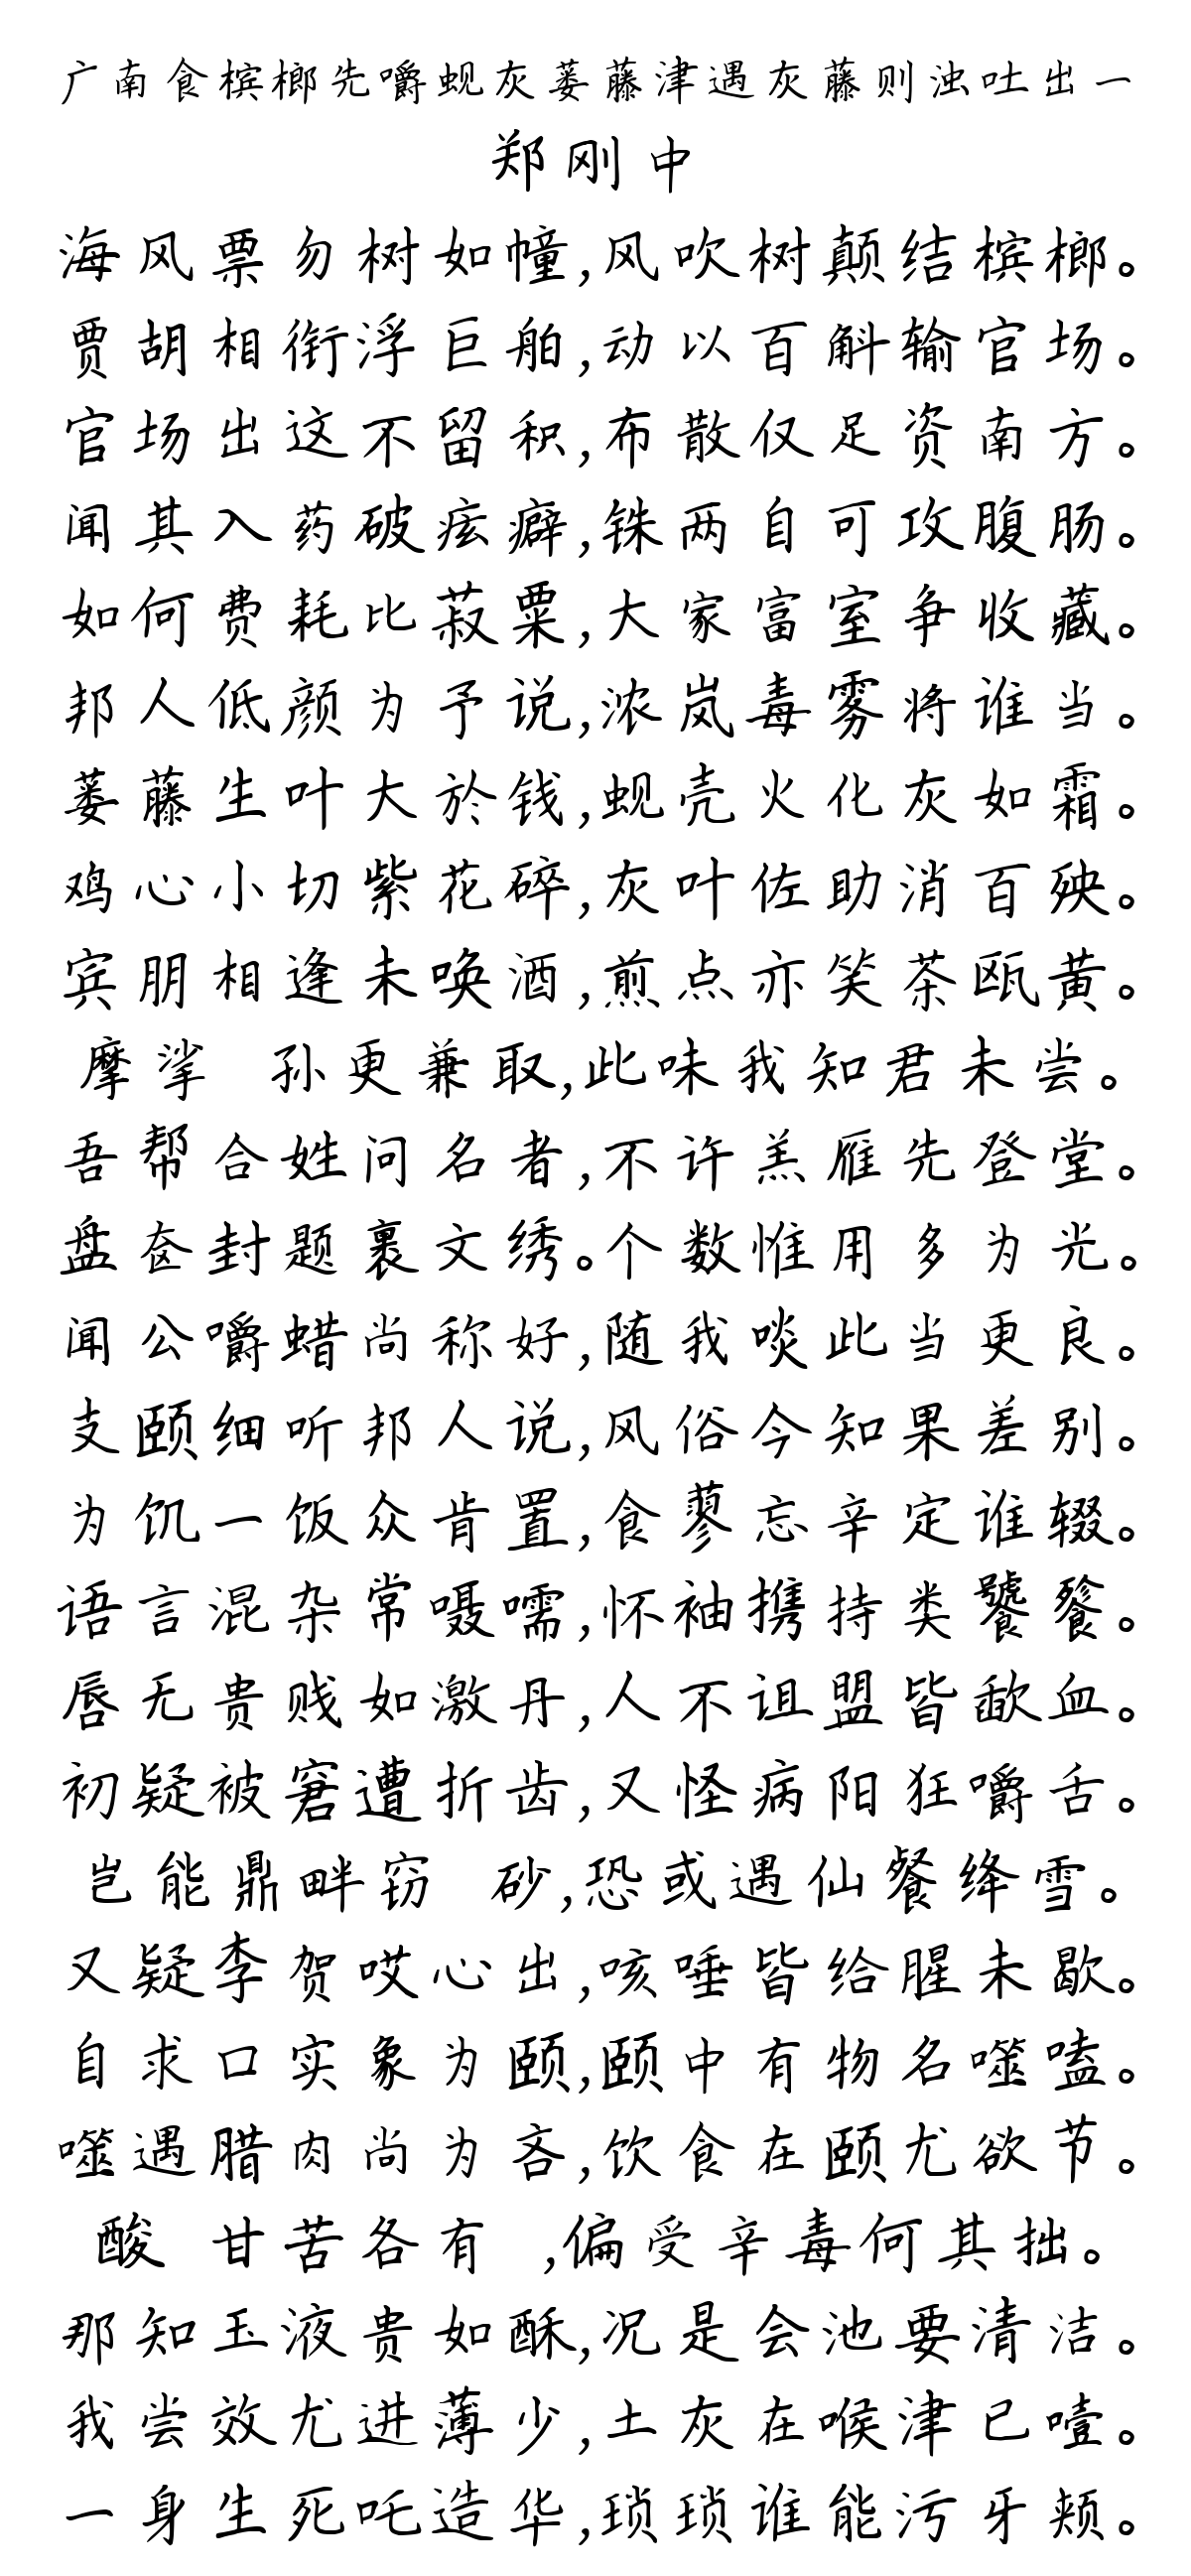 广南食槟榔先嚼蚬灰蒌藤津遇灰藤则浊吐出一
郑刚中
海风票勿树如幢,风吹树颠结槟榔。
贾胡相衔浮巨舶,动以百斛输官场。
官场出这不留积,布散仅足资南方。
闻其入药破痃癖,铢两自可攻腹肠。
如何费耗比菽粟,大家富室争收藏。
邦人低颜为予说,浓岚毒雾将谁当。
蒌藤生叶大於钱,蚬壳火化灰如霜。
鸡心小切紫花碎,灰叶佐助消百殃。
宾朋相逢未唤酒,煎点亦笑茶瓯黄。
摩挲 孙更兼取,此味我知君未尝。
吾帮合姓问名者,不许羔雁先登堂。
盘奁封题裹文绣。个数惟用多为光。
闻公嚼蜡尚称好,随我啖此当更良。
支颐细听邦人说,风俗今知果差别。
为饥一饭众肯置,食蓼忘辛定谁辍。
语言混杂常嗫嚅,怀袖携持类饕餮。
唇无贵贱如激丹,人不诅盟皆歃血。
初疑被窘遭折齿,又怪病阳狂嚼舌。
岂能鼎畔窃 砂,恐或遇仙餐绛雪。
又疑李贺哎心出,咳唾皆给腥未歇。
自求口实象为颐,颐中有物名噬嗑。
噬遇腊肉尚为吝,饮食在颐尤欲节。
酸 甘苦各有 ,偏受辛毒何其拙。
那知玉液贵如酥,况是会池要清洁。
我尝效尤进薄少,土灰在喉津已噎。
一身生死吒造华,琐琐谁能污牙颊。